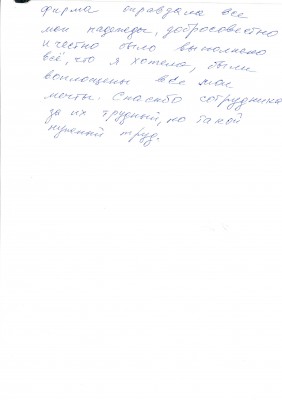 фирма оправдала все
мои надежды, добросовестно
и честно было выполнено
всё, что я хотела, были
воплощены все мои
мечты. Спасибо сотрудника
за их трудный, но такой
нужный труд.